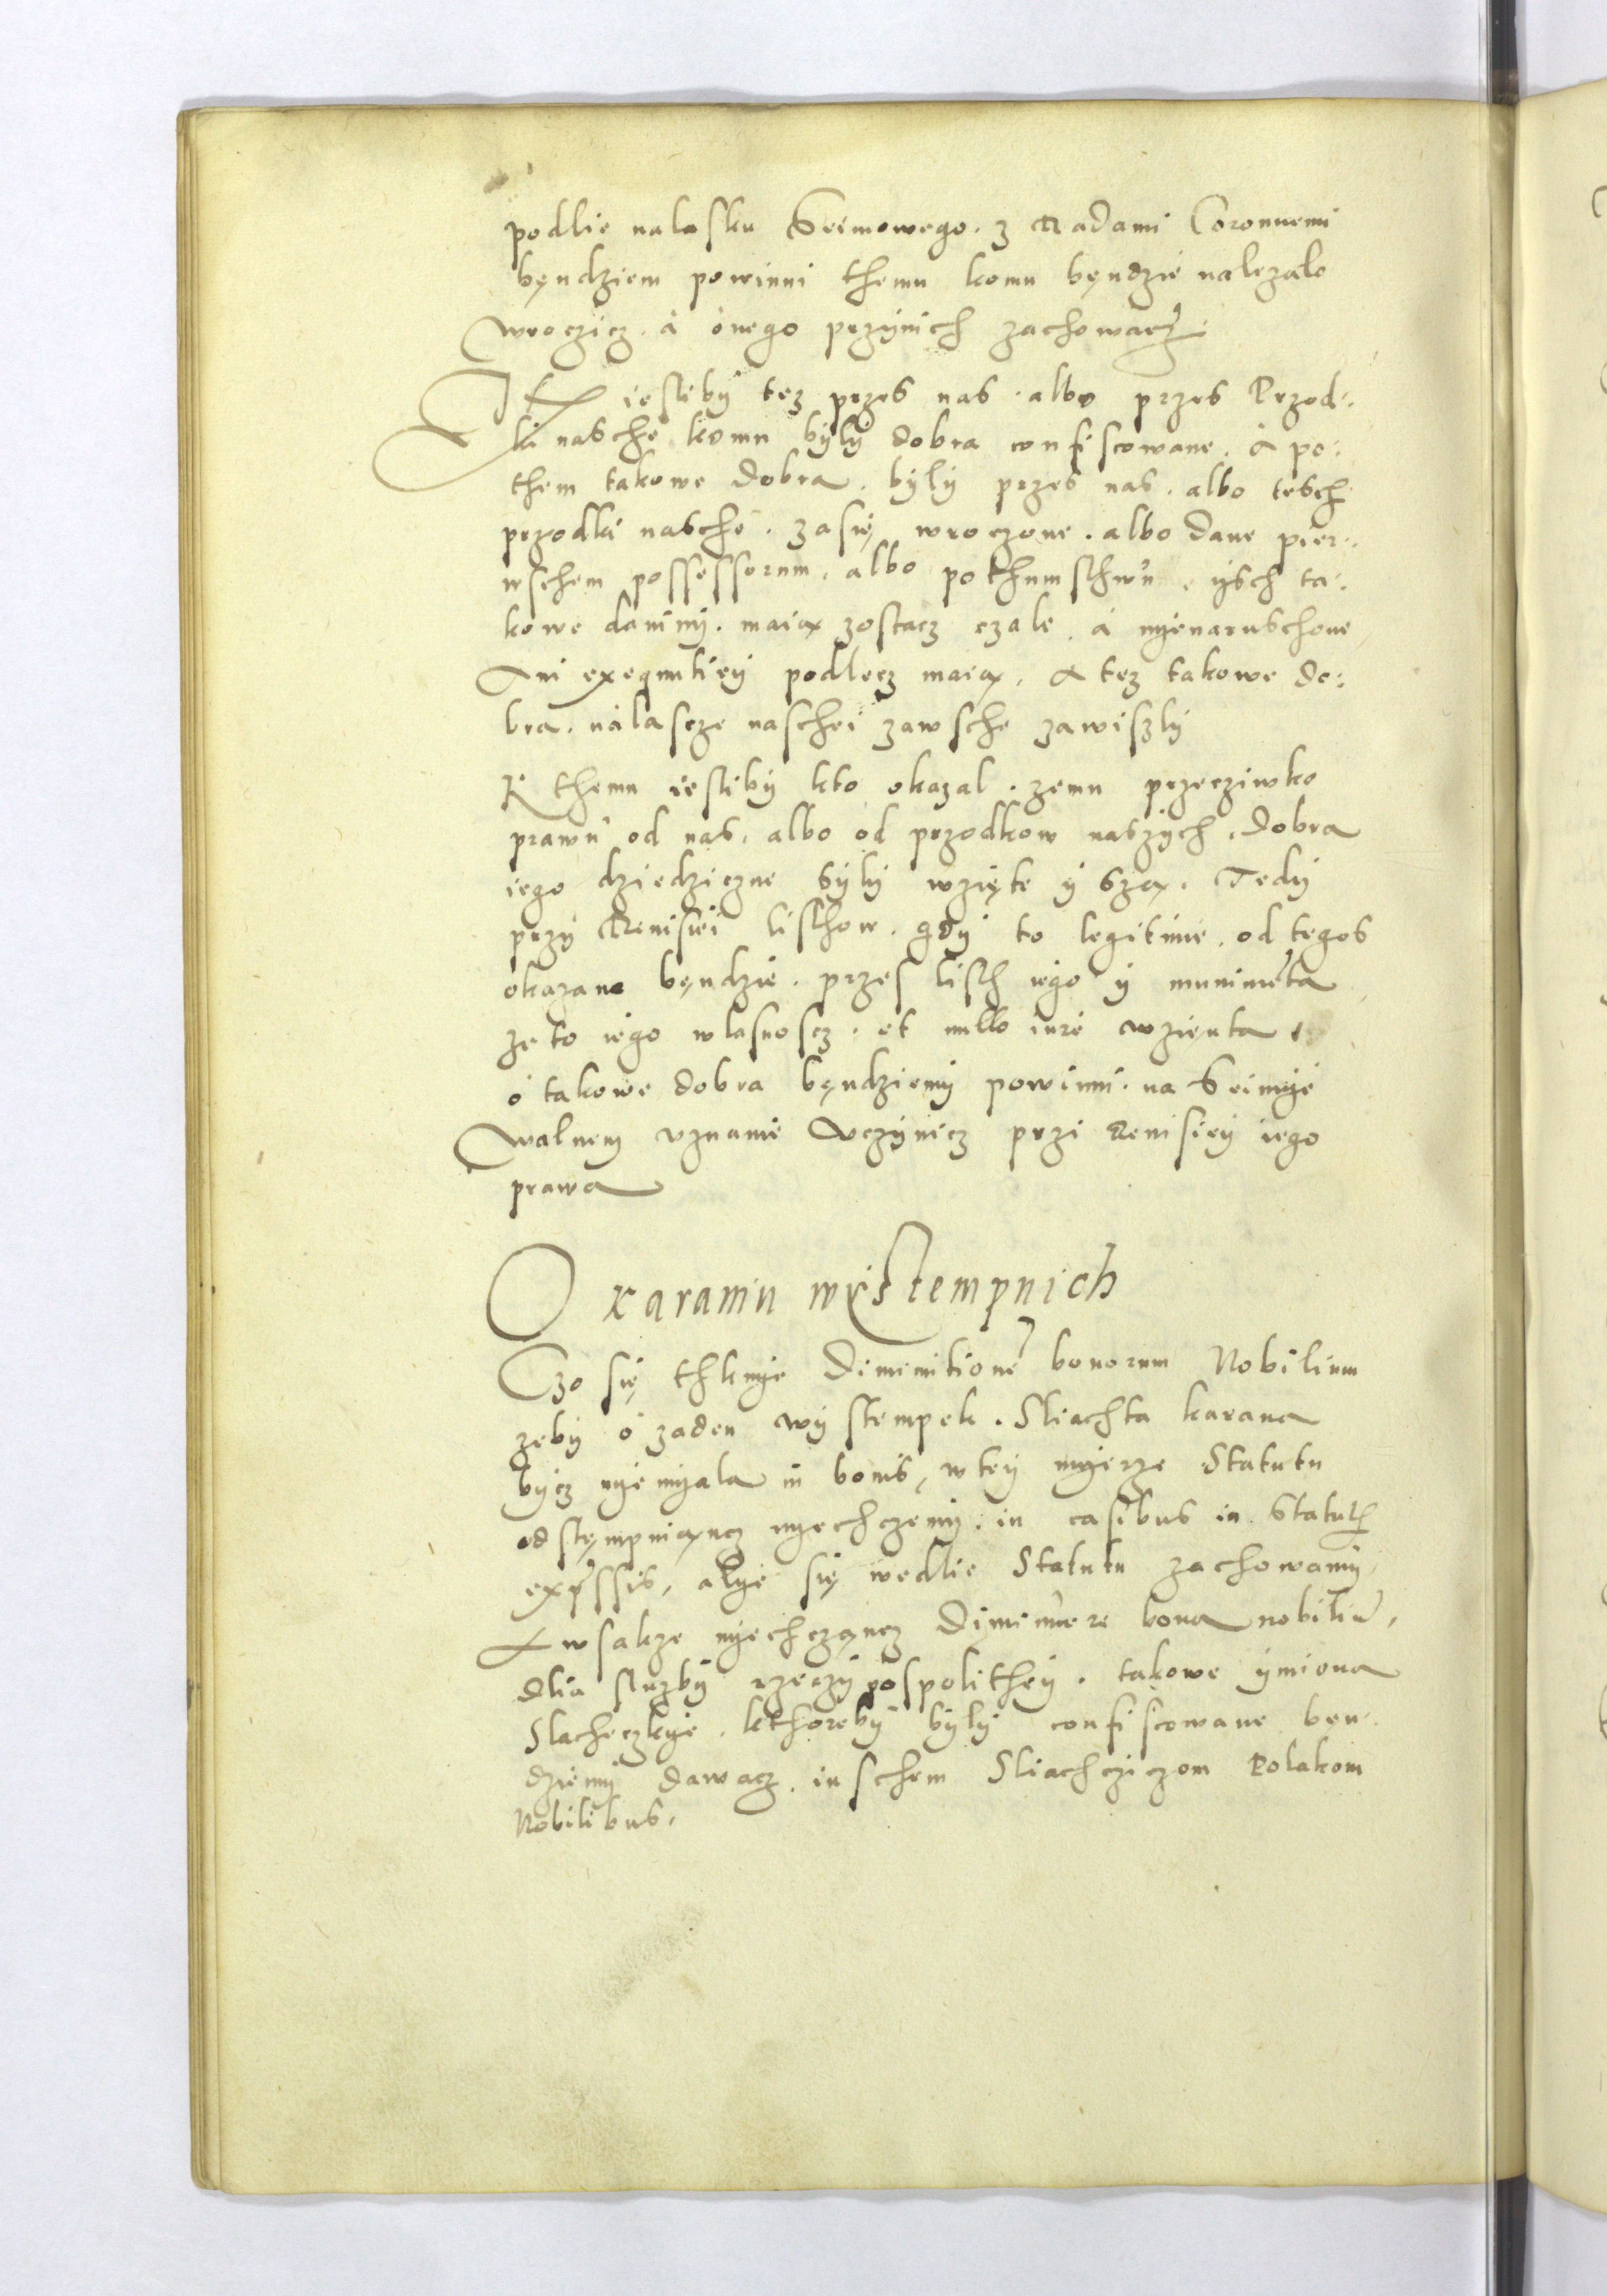 podlie nalasku Seimowego . z Radami Coronnemi
będziem powinni themu komu będzie nalezalo
wroczicz . á onego przÿnich zachowacz
A iesliby tez przes nas . albo przes Przod-
ki nasche komu bÿlÿ dobra confiscowane . A po-
them takowe dobra . bÿlÿ przes nas . albo tesch
przodki nasche . zasię wroczone . albo dane pier-
wschem possessorum . albo pothumsthwu . ÿsch ta-
kowe daninÿ . maią zostacz czale . á nÿenaruschone
Ani exequutieÿ podlecz maią . A tez takowe do-
bra . nálascze naschei zawsche zawislÿ
K themu iesliby kto okazal . zemu przecziwko
prawu od nas . albo od przodkow naszÿch . dobra
iego dziedziczne bÿlÿ wzięte ÿ szą . Tedÿ
przÿ Reuisiei listhow . gdÿ to legitime . od tegos
okazane będzie . przes listh iego ÿ munimēta
ze to iego wlasnoscz . et nullo iure wzięnta
ó takowe dobra będziemÿ powinni . na Seimÿe
walnem vznanie vczÿnicz przi Reuisieÿ iego
prawa
O karaniu wÿstempnich
Czo się thknÿe Diminutionē bonorum Nobilium
zebÿ ó zaden wÿstempek . Sliachta karana
bÿcz nÿe mÿala in bonis, w teÿ mÿerze Statutu
odstęmpuiąncz nÿechczemÿ . in casibus in Statutis
exp̄ssis, alÿe się wedlie Statutu zachowamÿ
A wsakze nÿechcząncz Diminuere bona nobiliū,
dlia sluzbÿ rzeczÿpospolitheÿ . takowe ÿmiona
Slacheczkÿe . kthorebÿ bÿlÿ confiscowane ben-
dziemÿ dawacz . inschem Sliachcziczom Polakom
Nobilibus .